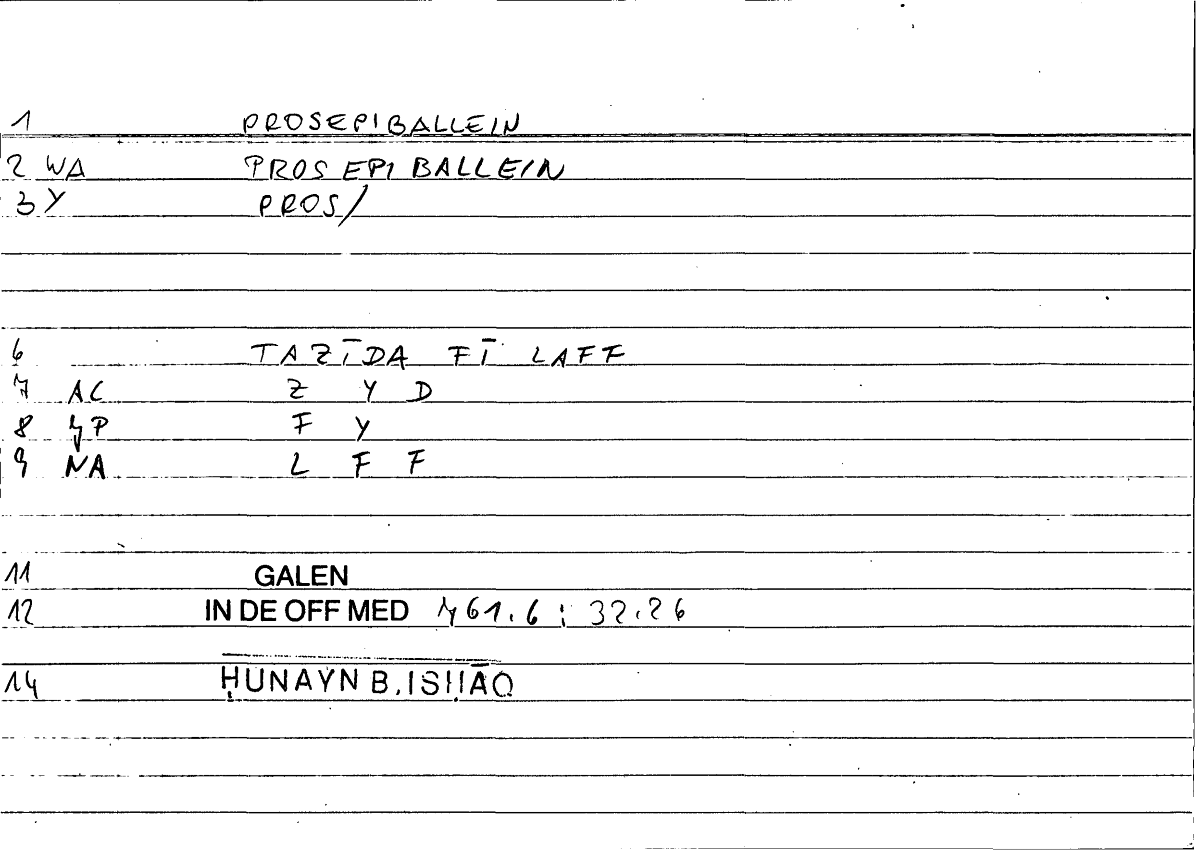 1 PROSEPIBALLEIN
2 WA PROS EPI BALLEIN
3 Y PROS/
6 TAZĪDA FĪ LAFF
7 AC Z Y D
8 YP F Y
9 NA L F F
11 GALEN
12 IN DE OFF MED 761.6 ; 32.26
14 ḤUNAYN B. ISḤĀQ